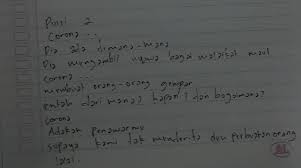 Puisi 2
Corona ...
Dia ada dimana-mana
Dia mengambil nyawa bagai malaikat maut
Corona ...
membuat orang-orang gempar
entah dari mana? kapan? dan bagaimana?
Corona
Adakah penawarmu
supaya kami tak menderita dan perbuatan orang
lalai.